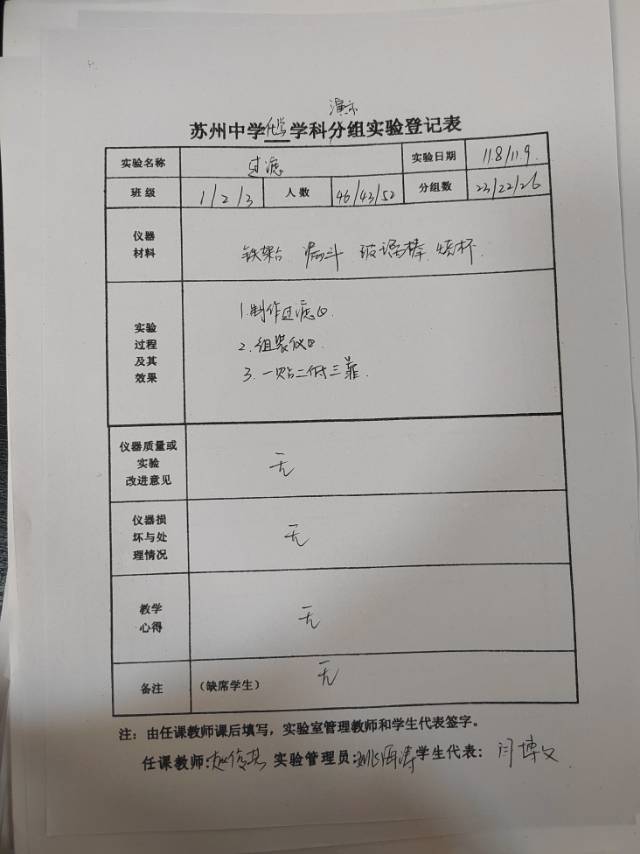 演示
苏州中学化学学科分组实验登记表
实验名称 过滤 实验日期 11.8/11.9.
班级 1/2/3 人数 46/43/52 分组数 23/22/26
仪器
材料
铁架台 漏斗 玻璃棒 烧杯.
实验
过程
及其
效果
1.制作过滤口.
2.组装仪口.
3.一贴二低三靠.
仪器质量或
实验
改进意见
无
仪器损
坏与处
理情况
无
教学
心得
无
备注 (缺席学生) 无
注：由任课教师课后填写，实验室管理教师和学生代表签字。
任课教师: 实验管理员: 学生代表: 闫博文